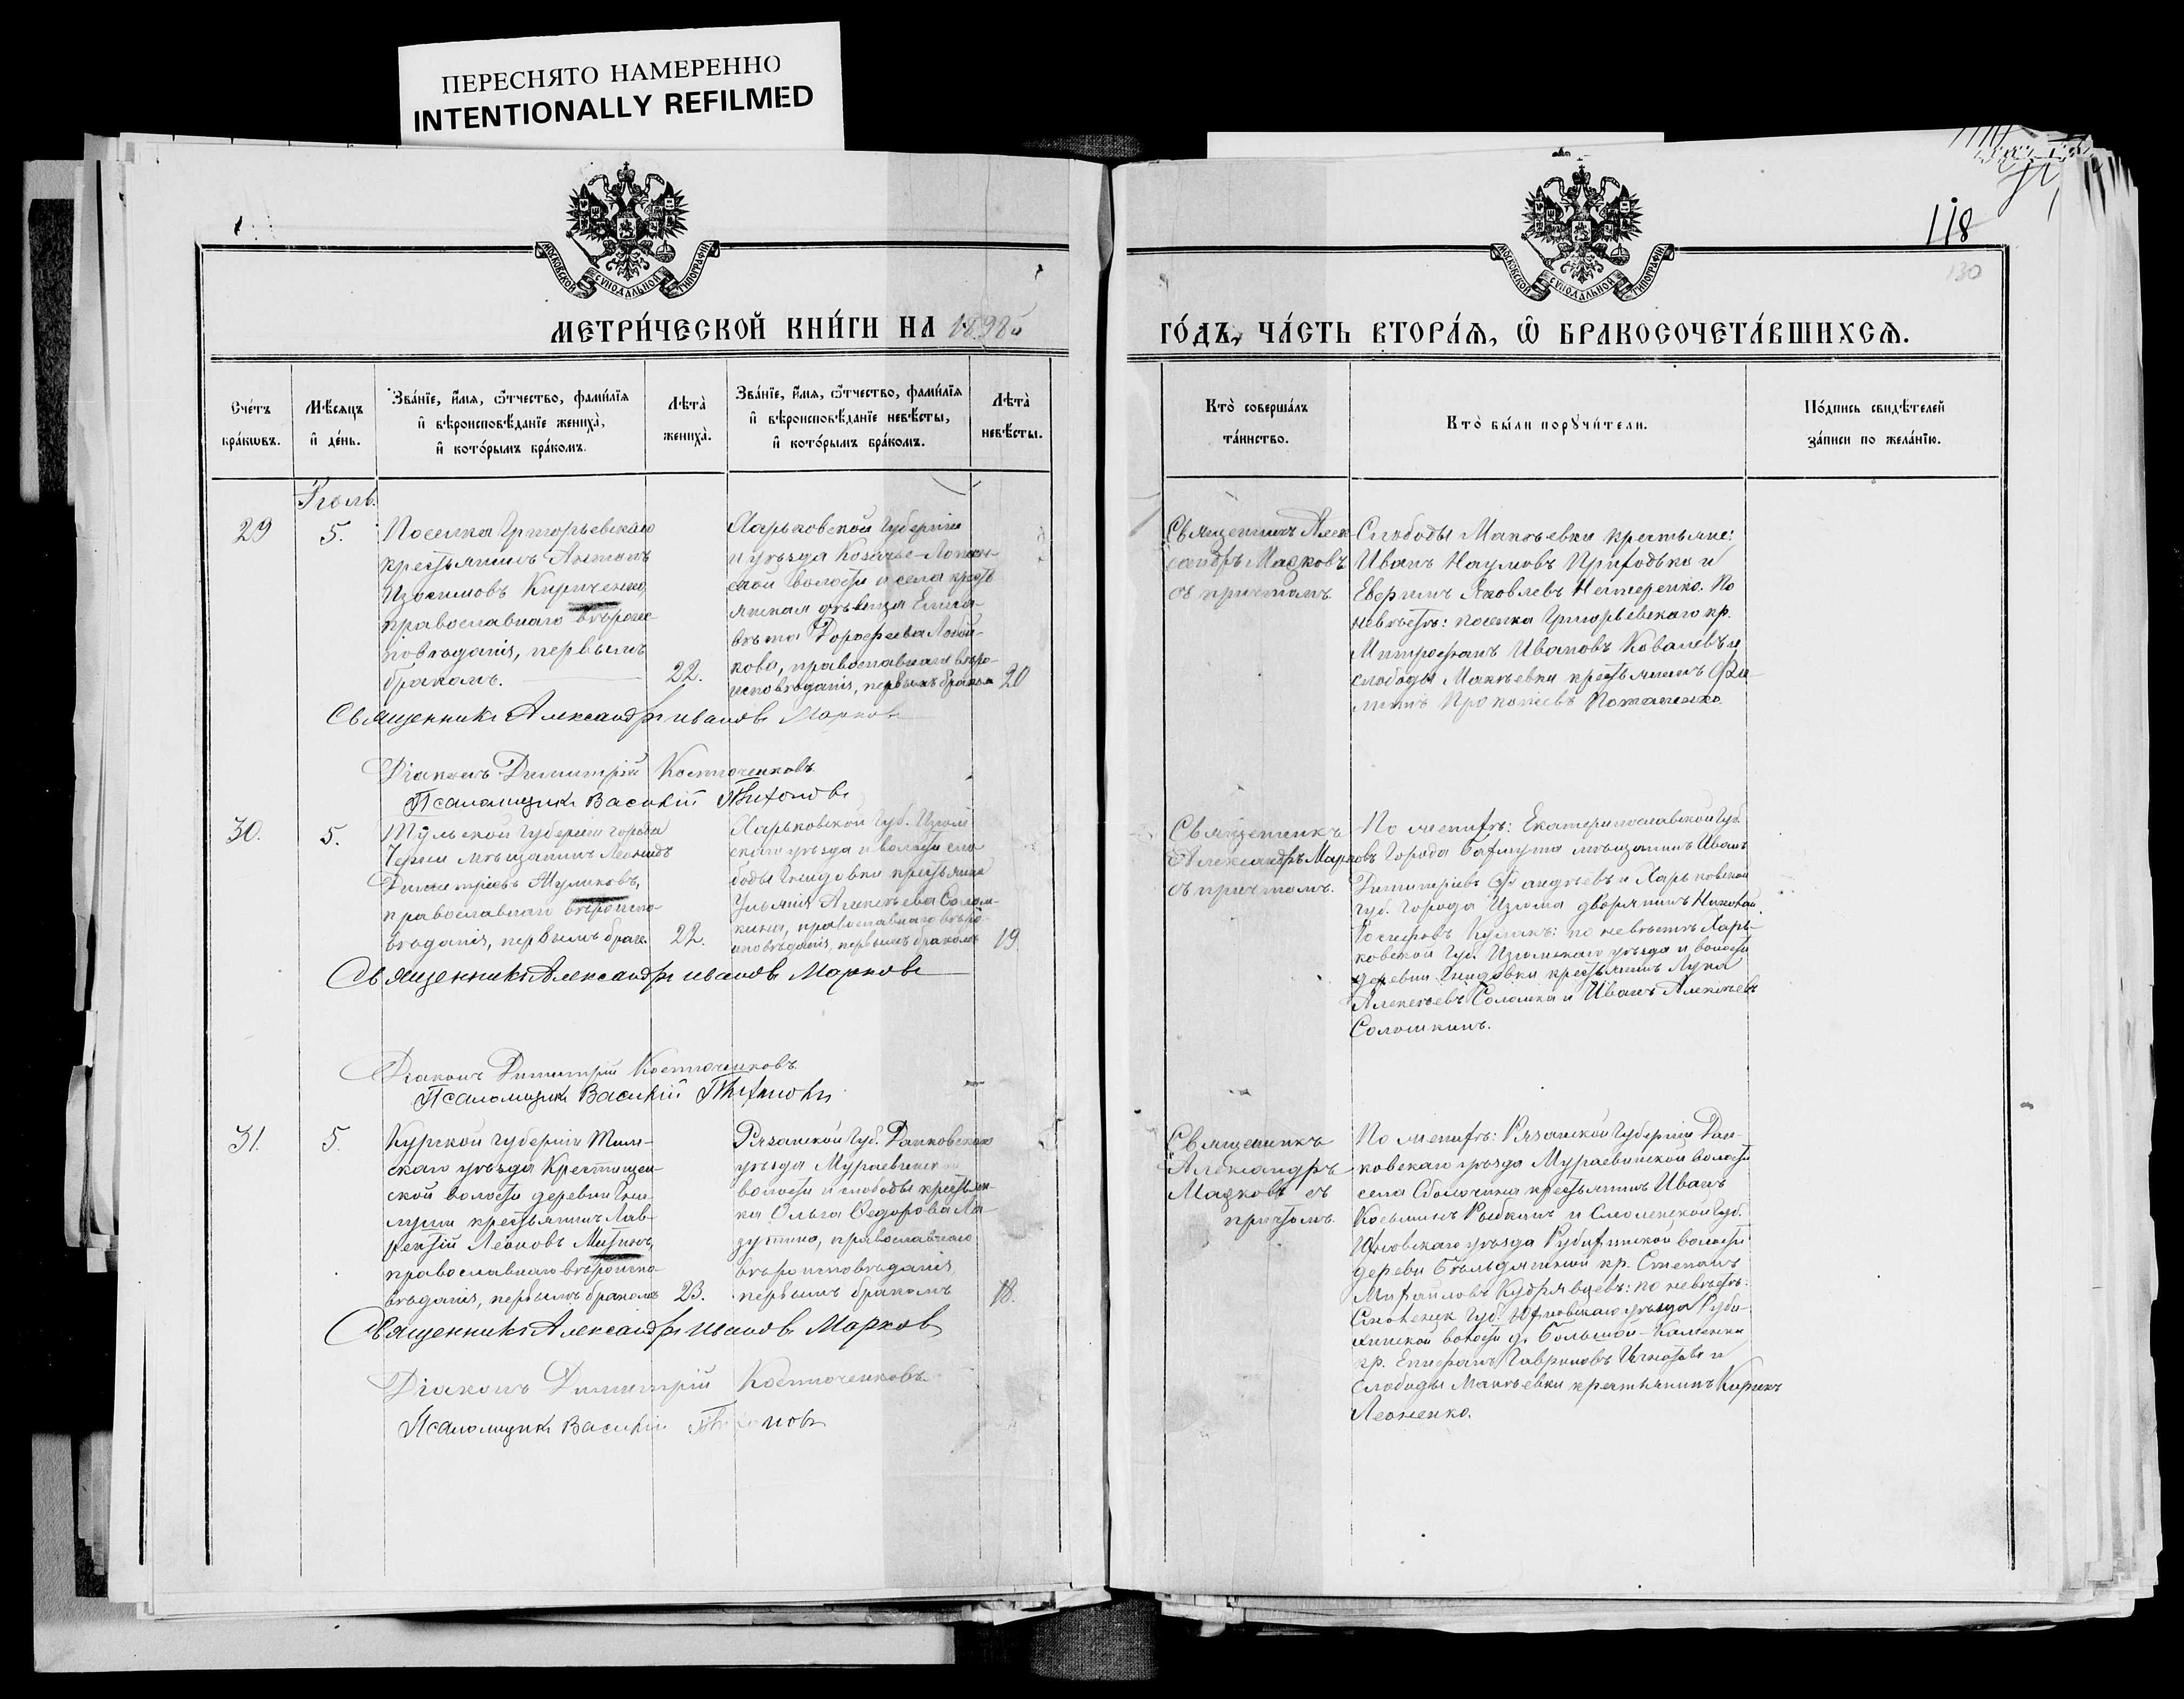 ПЕРЕСНЯТО НАМЕРЕННО
INTENTIONALLY REFILMED
МОСКОВСКОЙ СѴНОДАЛЬНОЙ ТИПОГРАФІИ
МОСКОВСКОЙ СѴНОДАЛЬНОЙ ТИПОГРАФІИ
118
130
МЕТРИ́ЧЕСКОЙ КНИ́ГИ НА 1898й
ГО́ДЪ, ЧА́СТЬ ВТОРА́Ѧ, Ѽ БРАКОСОЧЕТА́ВШИХСѦ.
Сче́тъ
бра́кѡвъ.
Мѣ́сяцъ
и҆ де́нь.
Зва́нїе, и҆́мя, ѻ҆́тчество, фами́лїя
и҆ вѣроисповѣ́данїе жениха̀,
и҆ кото́рымъ бра́комъ.
Лѣта̀
жениха̀.
Зва́нїе, и҆́мя, ѻ҆́тчество, фами́лїя
и҆ вѣроисповѣ́данїе невѣ́сты,
и҆ кото́рымъ бра́комъ.
Лѣта̀
невѣ́сты.
Кто̀ соверша́лъ
та́инство.
Кто̀ бы́ли порꙋчи́тели.
По́дпись свидѣ́телей
за́писи по жела́нїю.
Іюль.
29
5.
Поселка Григорьевскаго
крестьянинъ Антонъ
Изосимовъ Кириченко,
православнаго вѣроис-
повѣданія, первымъ
бракомъ.
22.
Харьковской Губерніи
и уѣзда Козачье-Лопан-
ской волости и села кресть
янская дѣвица Елиса-
вета Дорофеева Лобой-
кова, православнаго вѣро-
исповѣданія, первымъ бракомъ
20
Священникъ Алек-
сандръ Марковъ
съ причтомъ.
Слободы Макѣевки крестьяне:
Иванъ Наумовъ Приходько и
Евергинъ Яковлевъ Нестеренко. По
невѣстѣ: поселка Григорьевскаго кр.
Митрофанъ Ивановъ Ковалевъ и
слободы Макѣевки крестьянинъ Фи-
липъ Прокопіевъ Потапенко.
Священникъ Александръ Ивановъ Марковъ
Діаконъ Димитрій Костюченковъ.
Псаломщикъ Василій Тихоновъ
30.
5.
Тульской губерніи города
Черни мѣщанинъ Леонидъ
Димитріевъ Жуликовъ,
православнаго вѣроиспо-
вѣданія, первымъ брак.
22.
Харьковской Губ. Изюм
скаго уѣзда и волости сло
боды Гнидовки крестьянка
Ульянія Алексѣева Солош-
кина, православнаго вѣро-
исповѣданія, первымъ бракомъ
19.
Священникъ
Александръ Марковъ
съ причтомъ.
По женихѣ: Екатеринославской Губ.
Города Бахмута мѣщанинъ Иванъ
Димитріевъ Фандѣевъ и Харьковской
губ. города Изюма дворянинъ Николай
Іосифовъ Кулакъ: по невѣстѣ Харь-
ковской Губ. Изюмскаго уѣзда и волости
деревни Гнидовки крестьянинъ Лука
Алексѣевъ Солошка и Иванъ Алексѣевъ
Солошкинъ.
Священникъ Александръ Ивановъ Марковъ
Діаконъ Димитрій Костюченковъ.
Псаломщикъ Василій Тихоновъ
31.
5.
Курской губерніи Тим-
скаго уѣзда Крестищен-
ской волости деревни
крестьянинъ Лав-
рентій Леоновъ Митинъ,
православнаго вѣроиспо-
вѣданія, первымъ бракомъ
23.
Рязанской Губ. Данковскаго
уѣзда Мураевинской
волости и слободы крестьян-
ка Ольга Ѳедорова Ла-
зутина, православнаго
вѣроисповѣданія,
первымъ бракомъ
18.
Священникъ
Александръ
Марковъ съ
причтомъ.
По женихѣ: Рязанской Губерніи Дан-
ковскаго уѣзда Мураевинской волости
села крестьянинъ Иванъ
Козьминъ Рыбкинъ и Смоленской Губ.
Юхновскаго уѣзда Рубихинской волости
деревни кр. Степанъ
Михайловъ Кудрявцевъ: по невѣстѣ:
Смоленск. Губ. Юхновскаго уѣзда Руби-
хинской волости д. Большой-Каменки
кр. Епифанъ Гавриловъ Игнатовъ и
слободы Макѣевки крестьянинъ Кирикъ
Леоненко.
Священникъ Александръ Ивановъ Марковъ
Діаконъ Димитрій Костюченковъ.
Псаломщикъ Василій Тихоновъ